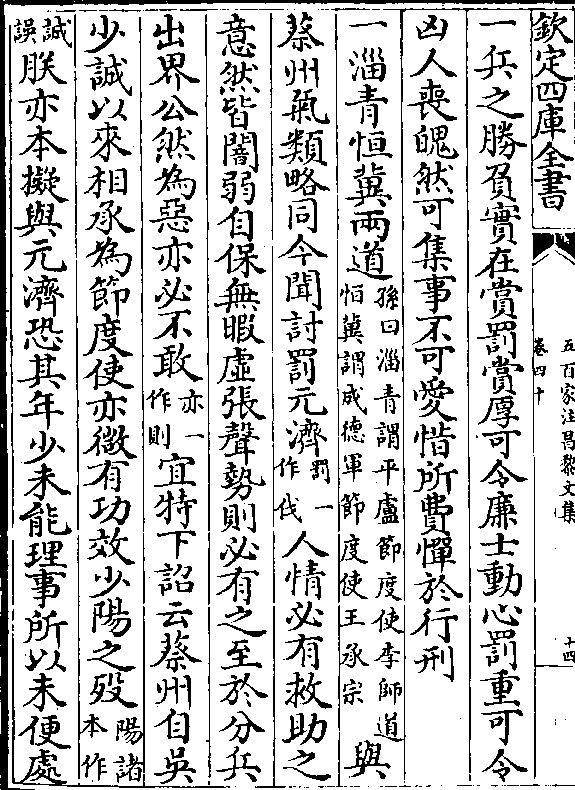 欽定四庫全書
五百家注昌黎文集
卷四十
十四
一兵之勝負實在賞罰賞厚可令廉士動心罰重可令
凶人喪魄然可集事不可愛惜所費憚於行刑
一淄青恒冀兩道孫曰淄青謂平盧節度使李師道恒冀謂成德軍節度使王承宗與
蔡州氣類略同今聞討罰元濟罰一作伐人情必有救助之
意然皆闇弱自保無暇虚張聲勢則必有之至於分兵
出界公然為惡亦必不敢亦一作則宜特下詔云蔡州自吳
少誠以來相承為節度使亦㣲有功效少陽之歿陽諸本作
誠誤朕亦本擬與元濟恐其年少未能理事所以未便處